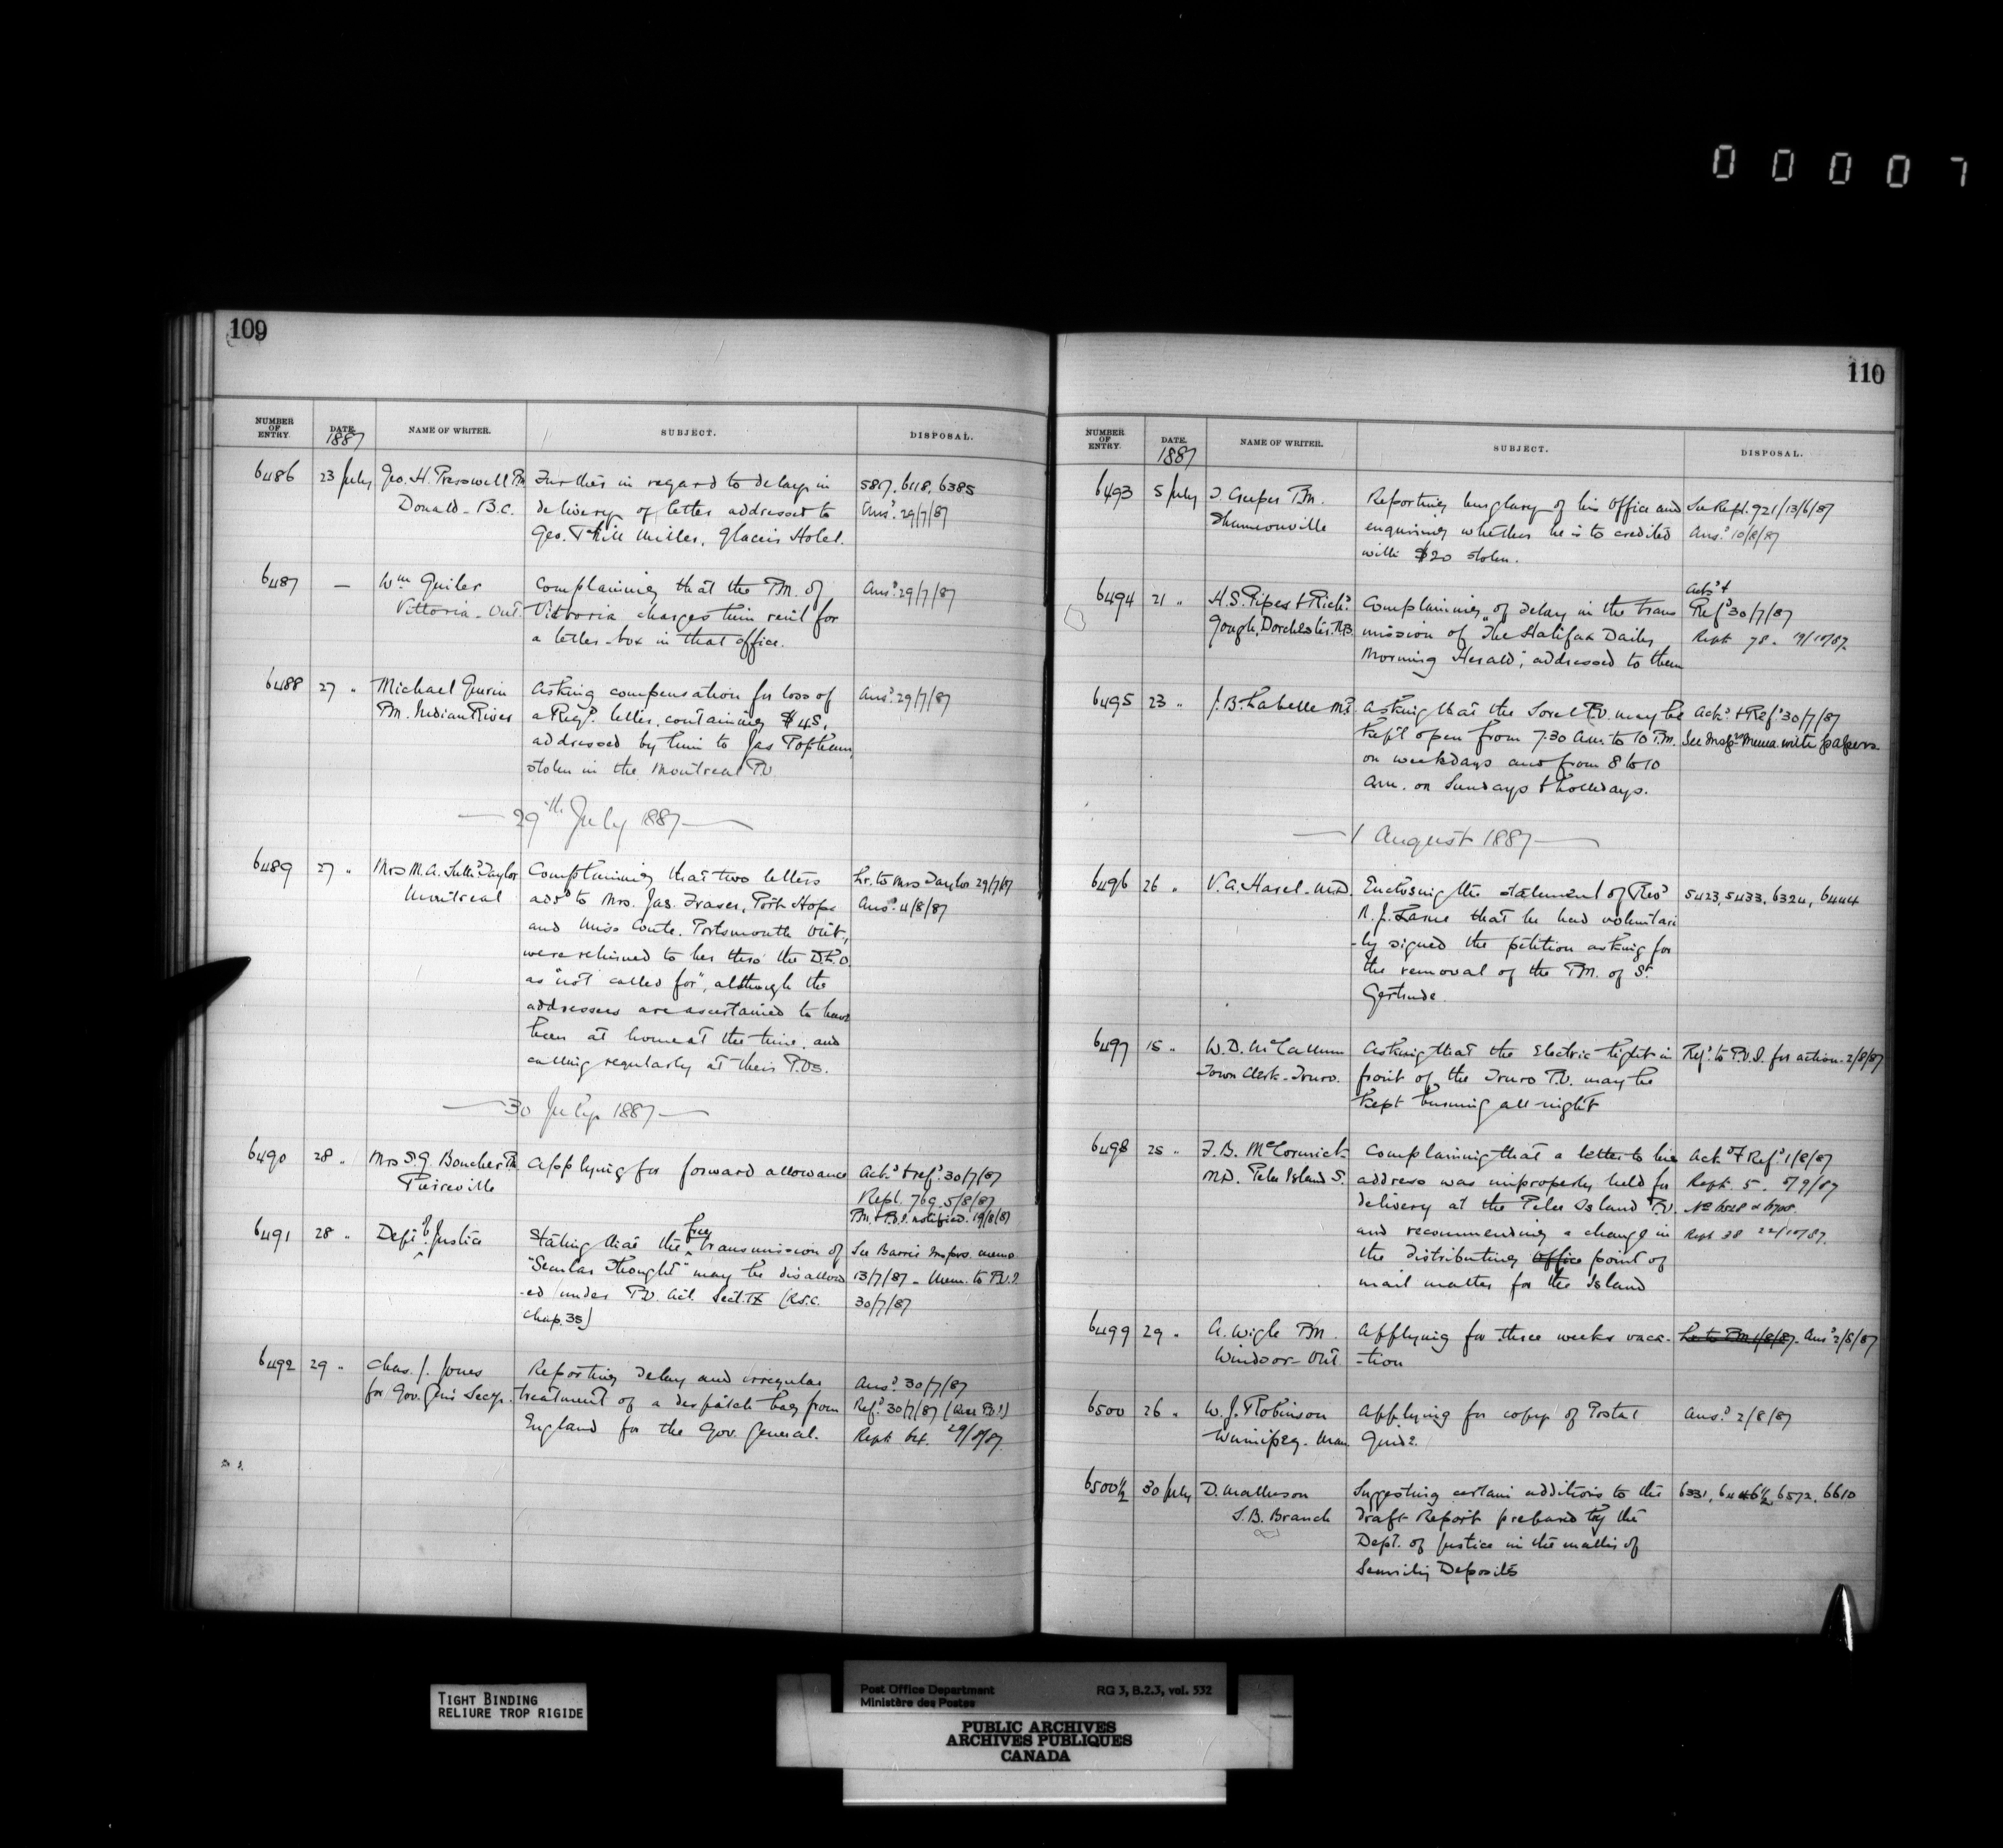 00007
109
NUMBER OF ENTRY. DATE. 1887 NAME OF WRITER. SUBJECT. DISPOSAL.
6486 23 July Geo. H. Presswell PM Further in regard to delay in 5817, 6118, 6385
Donald - B.C. delivery of letter addressed to Ansd. 29/7/87
Geo. Miller, Glacier Hotel.
6487 — Wm Guiler Complaining that the P.M. of Ansd. 29/7/87
Vittoria - Ont. Vittoria charges him rent for
a letter-box in that office.
6488 27 " Michael Guerin Asking compensation for loss of Ansd. 29/7/87
PM. Indian River a Regd. letter, containing $45,
addressed by him to Jas Popham,
stolen in the Montreal P.O.
— 29th July 1887 —
6489 27 " Mrs M.A. Taylor Complaining that two letters Lr. to Mrs Taylor 29/7/87
Montreal addd to Mrs. Jas. Fraser, Port Hope Ansd. 4/8/87
and Miss Coute, Portsmouth Ont.,
were returned to her thro' the D.L.O.
as "not called for", although the
addressees are ascertained to have
been at home at the time, and
calling regularly at their P.Os.
— 30 July 1887 —
6490 28 " Mrs S.G. Boucher PM Applying for forward allowance Ackd. & refd. 30/7/87
Pierreville Rept. 769. 5/8/87
PM. & P.O.I. notified. 19/8/87
6491 28 " Dept of Justice Stating that the free transmission of See Barrie Insprs. memo
"Secular Thought" may be disallow 13/7/87 - Mem. to P.O.I.
-ed under P.O. Act. Sect. IX (R.S.C. 30/7/87
Chap. 35)
6492 29 " Chas. J. Jones Reporting delay and irregular Ansd. 30/7/87
for Gov. Gen's Secy. treatment of a despatch bag from Refd. 30/7/87
England for the Gov. General. Rept. 64. 29/8/87
110
NUMBER OF ENTRY. DATE. 1887 NAME OF WRITER. SUBJECT. DISPOSAL.
6493 5 July J. Cooper P.M. Reporting burglary of his office and See Rept. 921/13/6/87
Shannonville enquiring whether he is to credited Ansd. 10/8/87
with $20 stolen.
6494 21 " H.S. Pipes & Richd. Complaining of delay in the trans Ackd &
Gough, Dorchester. N.B. mission of "The Halifax Daily Refd 30/7/87
Morning Herald", addressed to them Rept 78. 19/10/87.
6495 23 " J.B. Labelle M.P. Asking that the Sorel P.O. may be Ackd. & Refd 30/7/87
kept open from 7.30 a.m. to 10 P.M. See Inspr's Memo. with papers.
on weekdays and from 8 to 10
a.m. on Sundays & holidays.
— 1 August 1887 —
6496 26 " V.A. Hasel - M.D. Enclosing the statement of Revd 5423, 5433, 6324, 6444
N.J. Larue that he had voluntari
-ly signed the petition asking for
the removal of the P.M. of St.
Gertrude.
6497 15 " W.D. McCallum Asking that the Electric light in Refd. to P.O.I. for action. 2/8/87
Town Clerk - Truro. front of the Truro P.O. may be
kept burning all night
6498 25 " F.B. McCormick Complaining that a letter to his Ackd. & Refd. 1/8/87
M.D. Pelee Island S. address was improperly held for Rept. 5. 5/9/87
delivery at the Pelee Island P.O. No 6528 & 6708.
and recommending a change in Rept 38 22/10/87.
the distributing Office point of
mail matter for the Island
6499 29 " A. Wigle P.M. Applying for three weeks vaca- Lr. to P.M. 1/8/87. Ansd 2/8/87
Windsor - Ont -tion
6500 26 " W.J. Robinson Applying for copy of Postal Ansd. 2/8/87
Winnipeg. Man Guide.
6500½ 30 July D. Matheson Suggesting certain additions to the 6331, 6446½, 6572, 6610
S.B. Branch draft Report prepared by the
Dept. of Justice in the matter of
Security Deposits
TIGHT BINDING
RELIURE TROP RIGIDE
Post Office Department RG 3, B.2.3, vol. 532
Ministère des Postes
PUBLIC ARCHIVES
ARCHIVES PUBLIQUES
CANADA